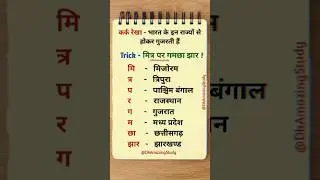 कर्क रेखा - भारत के इन राज्यों से
होकर गुजरती हैं
Trick - मित्र पर गमछा झार ?
मि - मिजोरम
त्र - त्रिपुरा
प - पाश्चिम बंगाल
र - राजस्थान
ग - गुजरात
म - मध्य प्रदेश
छा - छत्तीसगढ़
झार - झारखण्ड
@DkAmazingStudy
@DkAmazingStudy